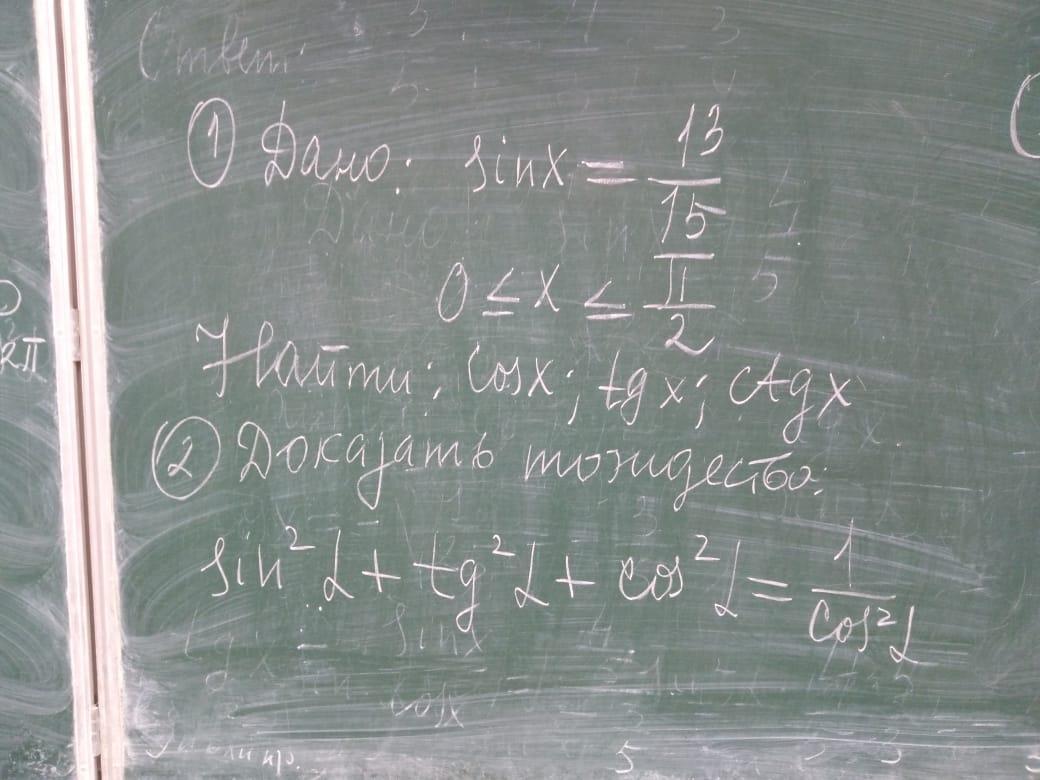 Ответ:
① Дано: sinx = 13/15
0 ≤ x ≤ π/2
Найти: cosx; tgx; ctgx
② Доказать тождество:
sin²α + tg²α + cos²α = 1/cos²α
tgx = sinx
cosx
2π